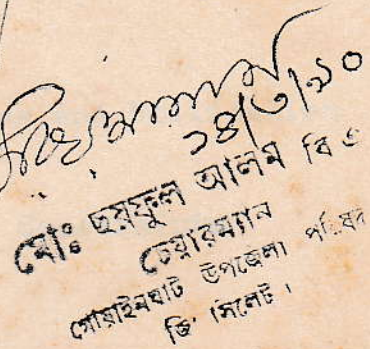 ১৪/৩/৯০
মোঃ ছয়ফুল আলম বি এ
চেয়ারম্যান
গোয়াইনঘাট উপজেলা পরিষদ
জি. সিলেট।